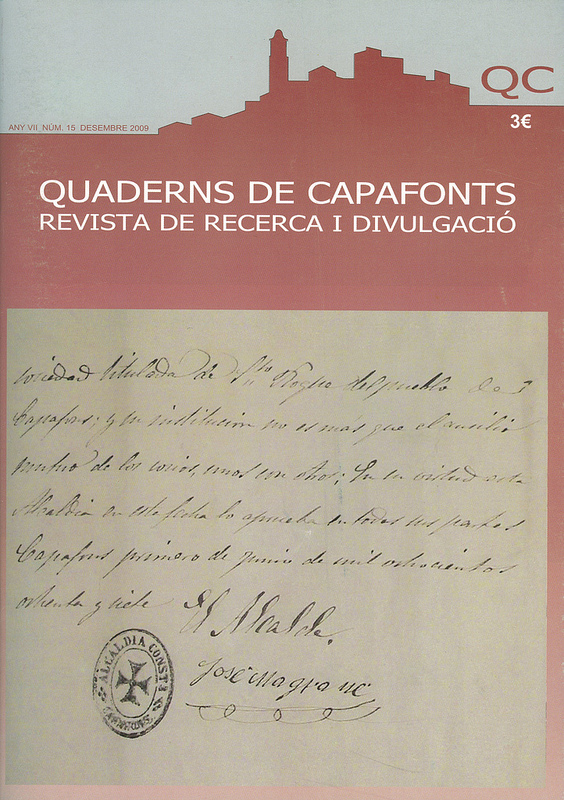 QC
ANY VII_NÚM. 15 DESEMBRE 2009
3€
QUADERNS DE CAPAFONTS
REVISTA DE RECERCA I DIVULGACIÓ
sociedad titulada de Sto Roque del pueblo de
Capafons; y su institucion no es más que el ausilio
mutuo de los socios, unos con otros; En su virtud esta
Alcaldia en esta fecha lo aprueba en todas sus partes
Capafons primero de Junio de mil ochocientos
ochenta y siete El Alcalde.
José Magrané
ALCALDIA CONSTL